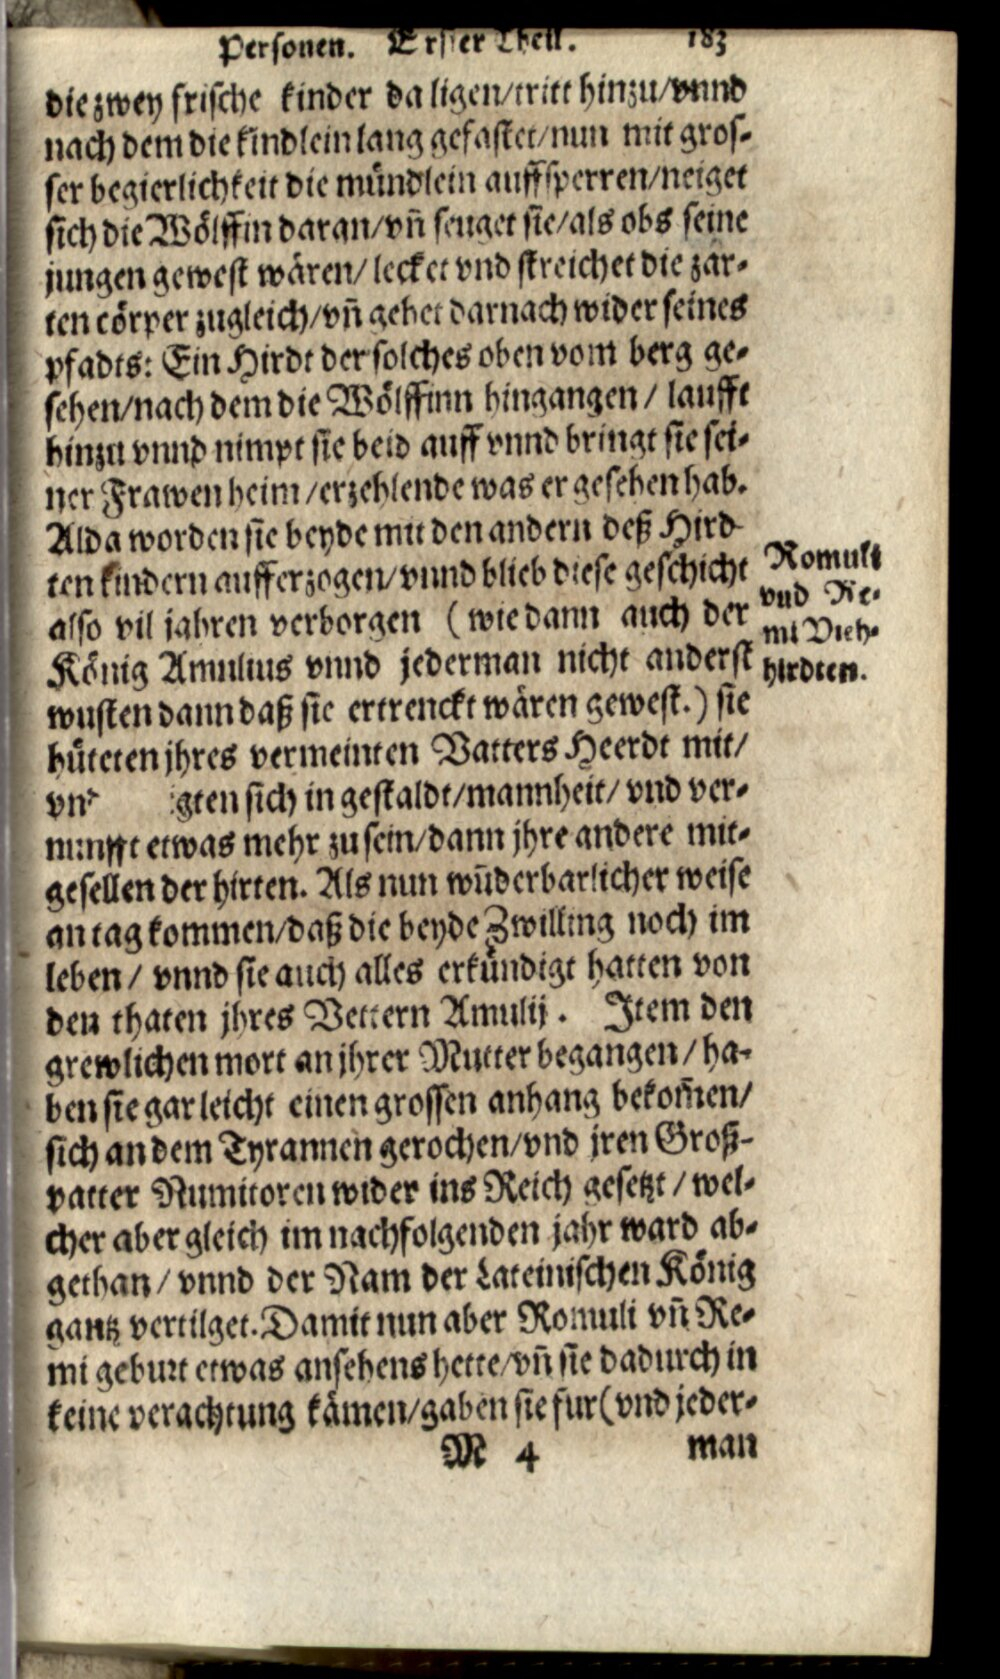 Personen. Erster Theil. 183
die zwey frische kinder da ligen/tritt hinzu/vnnd
nach dem die kindlein lang gefastet/nun mit gros-
ser begierlichkeit die mündlein auffsperren/neiget
sich die Wölffin daran/vñ seuget sie/als obs seine
jungen gewest wären/lecket vnd streichet die zar-
ten cörper zugleich/vñ gehet darnach wider seines
pfadts: Ein Hirdt der solches oben vom berg ge-
sehen/nach dem die Wölffinn hingangen/laufft
hinzu vnnd nimpt sie beid auff vnnd bringt sie sei-
ner Frawen heim/erzehlende was er gesehen hab.
Alda worden sie beyde mit den andern deß Hird-
ten kindern aufferzogen/vnnd blieb diese geschicht
also vil jahren verborgen (wie dann auch der
König Amulius vnnd jederman nicht anderst
wusten dann daß sie ertrenckt wären gewest.) sie
hüteten jhres vermeinten Vatters Heerdt mit/
gten sich in gestaldt/mannheit/vnd ver-
nunfft etwas mehr zu sein/dann jhre andere mit-
gesellen der hirten. Als nun wũderbarlicher weise
an tag kommen/daß die beyde Zwilling noch im
leben/vnnd sie auch alles erkündigt hatten von
den thaten jhres Vettern Amulij. Item den
grewlichen mort an jhrer Mutter begangen/ha-
ben sie gar leicht einen grossen anhang bekom̃en/
sich an dem Tyrannen gerochen/vnd jren Groß-
vatter Numitoren wider ins Reich gesetzt/wel-
cher aber gleich im nachfolgenden jahr ward ab-
gethan/vnnd der Nam der Lateinischen König
gantz vertilget. Damit nun aber Romuli vñ Re-
mi geburt etwas ansehens hette/vñ sie dadurch in
keine verachtung kämen/gaben sie fur (vnd jeder-
M 4 man
Romuli
vnd Re-
mi Vieh-
hirdten.